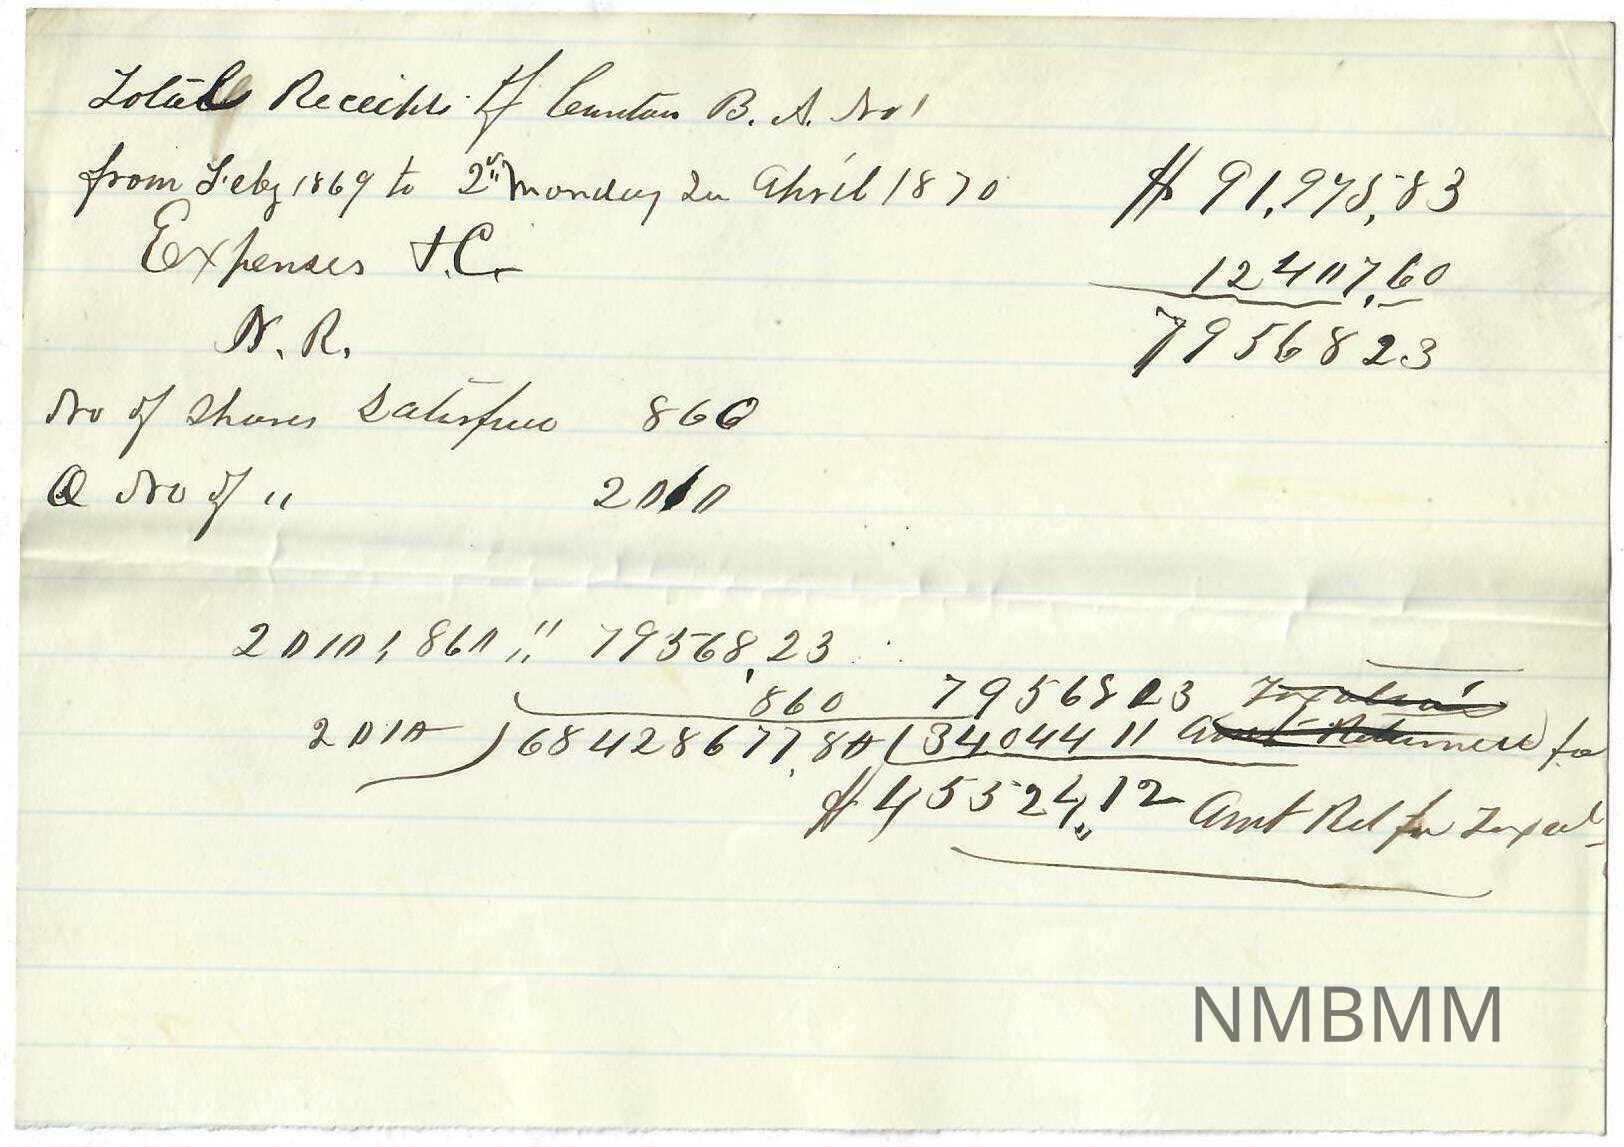 Total Receipts of Canton B. A. No 1
from Feby 1869 to 2nd Monday In April 1870 $ 91,975,83
Expenses & C. 12407,60
N. R. 7956823
No of Shares Satisfied 860
O No of " 2010
2010 : 860 :: 79568,23
860 7956823
2010 ) 68428677,80 ( 3404411 Amt Returned for
$ 45524,12 Amt Ret for Taxal
NMBMM